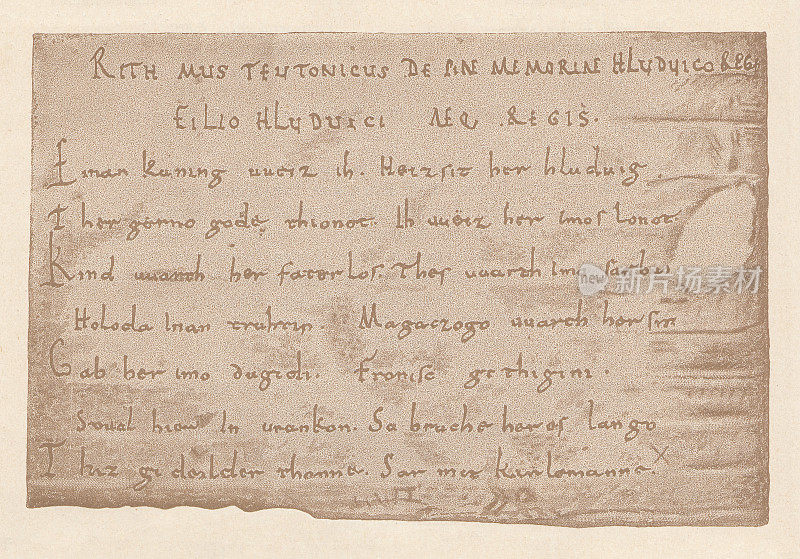 RITHMUS TEUTONICUS DE PIAE MEMORIAE HLUDUICO REGE
FILIO HLUDUICI AEQ; REGIS.
Einan kuning uueiz ih. Heizsit her hluduig.
Ther gerno gode thionot. Ih uueiz her imos lonot.
Kind uuarth her faterlos. Thes uuarth imo sar buoz
Holoda Inan truhtin. Magaczogo uuarth her sin
Gab her imo dugidi. Fronisc githigini.
Stual hier In urankon. So bruche her es lango
Thiz gideilder thanne. Sar mit karlemanne.